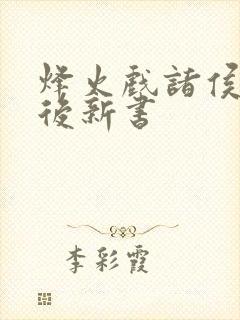 烽火戲諸侯
後新書
李彩霞